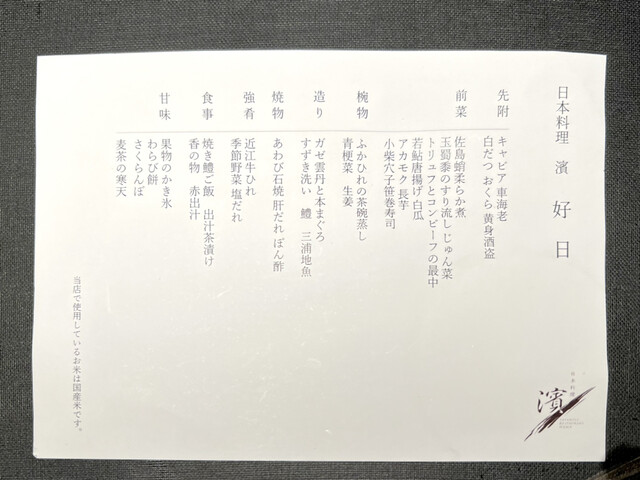 日本料理 濱 好日
先附
キャビア 車海老
白だつ おくら 黄身酒盗
前菜
佐島蛸柔らか煮
玉蜀黍のすり流し じゅん菜
トリュフとコンビーフの最中
若鮎唐揚げ 白瓜
アカモク 長芋
小柴穴子笹巻寿司
椀物
ふかひれの茶碗蒸し
青梗菜 生姜
造り
ガゼ雲丹と本まぐろ
すずき洗い 鱧 三浦地魚
焼物
あわび石焼 肝だれ ぽん酢
強肴
近江牛ひれ
季節野菜 塩だれ
食事
焼き鱧ご飯 出汁茶漬け
香の物 赤出汁
甘味
果物のかき氷
わらび餅
さくらんぼ
麦茶の寒天
当店で使用しているお米は国産米です。
日本料理
濱